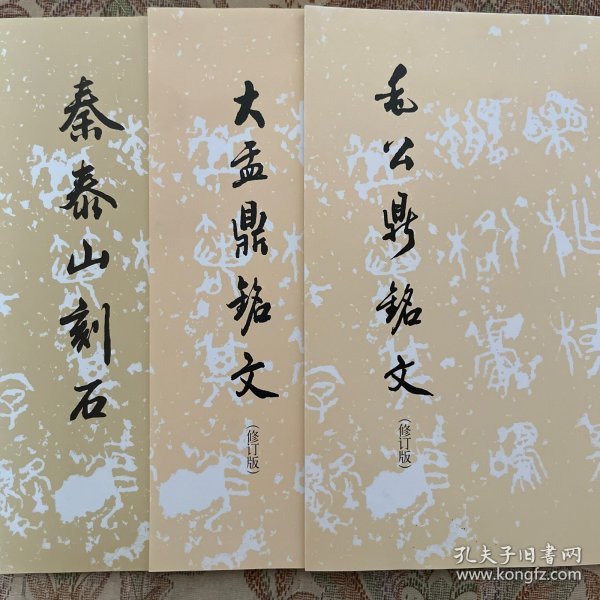 秦泰山刻石
大盂鼎铭文
(修订版)
毛公鼎铭文
(修订版)
孔夫子旧书网
www.kongfz.com